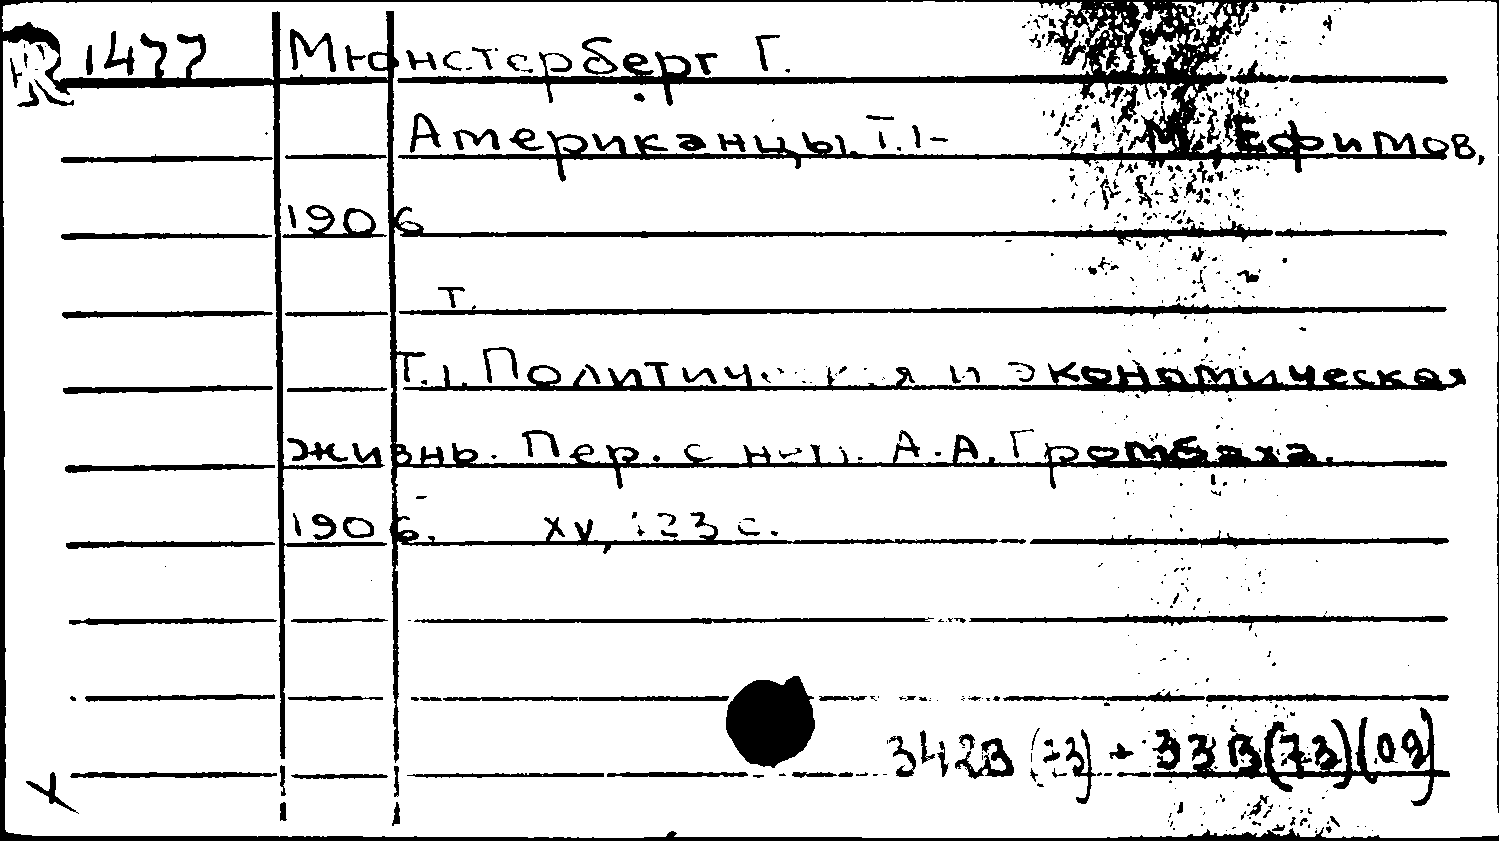 R 1477 Мюнстерберг Г.
Американцы. Т.1- М., Ефимов,
1906
т.
Т.1. Политическая и экономическая
жизнь. Пер. с нем. А.А. Громбаха.
1906. XV, 123 с.
342В (73) + 33В(73)(09)